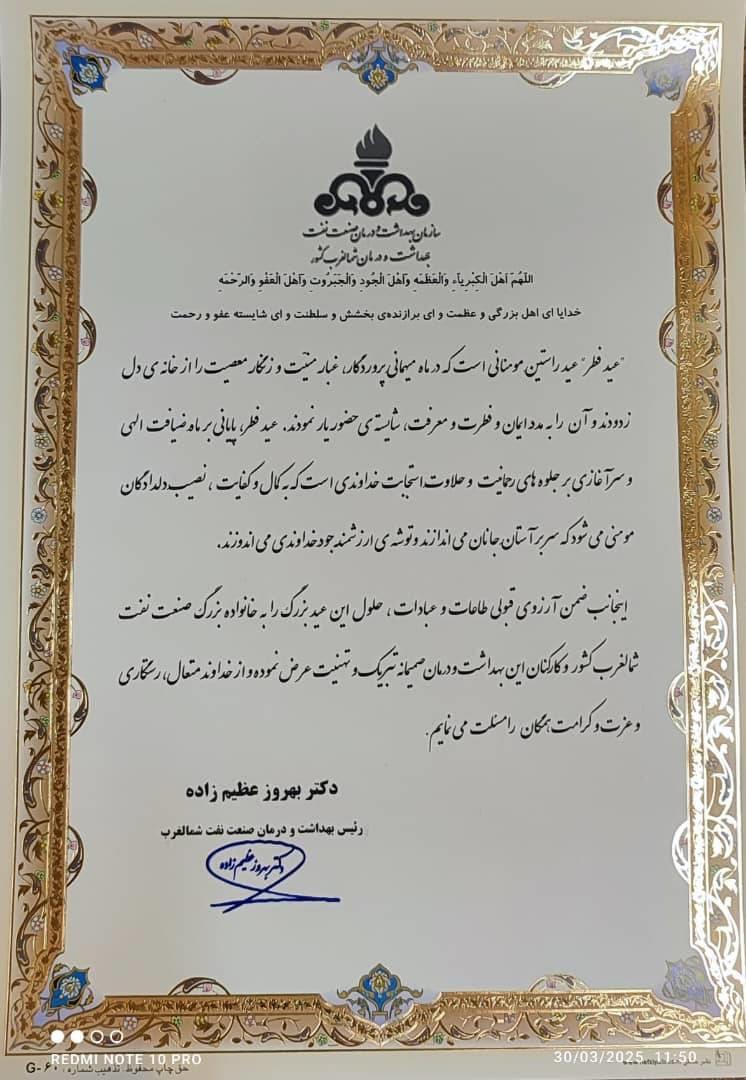 سازمان بهداشت و درمان صنعت نفت
بهداشت و درمان شمالغرب کشور
اللهُمَّ اَهْلَ الْکِبْرِیآءِ وَالْعَظَمَهِ وَاَهْلَ الْجُودِ وَالْجَبَرُوتِ وَاَهْلَ الْعَفْوِ وَالرَّحْمَهِ
خدایا ای اهل بزرگی و عظمت و ای برازنده‌ی بخشش و سلطنت و ای شایسته عفو و رحمت
"عید فطر" عید راستین مومنانی است که در ماه میهمانی پروردگار، غبار منیّت و زنگار معصیت را از خانه ی دل
زدودند و آن را به مدد ایمان و فطرت و معرفت، شایسته ی حضور یار نمودند. عید فطر، پایانی بر ماه ضیافت الهی
و سرآغازی بر جلوه های رحمانیت و حلاوت استجابت خداوندی است که به کمال و کفایت ، نصیب دلدادگان
مومنی می شود که سر بر آستان جانان می اندازند و توشه ی ارزشمند جود خداوندی می اندوزند.
اینجانب ضمن آرزوی قبولی طاعات و عبادات ، حلول این عید بزرگ را به خانواده بزرگ صنعت نفت
شمالغرب کشور و کارکنان این بهداشت و درمان صمیمانه تبریک و تهنیت عرض نموده و از خداوند متعال، رستگاری
و عزت و کرامت همگان را مسئلت می نمایم.
دکتر بهروز عظیم زاده
رئیس بهداشت و درمان صنعت نفت شمالغرب
دکتر بهروز عظیم زاده
REDMI NOTE 10 PRO
30/03/2025 11:50
حق چاپ محفوظ، تذهیب شماره : G-۶۰